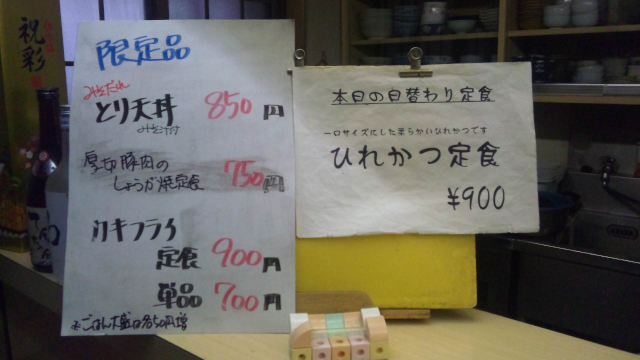 祝彩
限定品
みそだれ
とり天丼 850円
みそ汁付
厚切豚肉の
しょうが焼定食 750円
カキフライ
定食 900円
単品 700円
※ごはん大盛は各50円増
本日の日替わり定食
一口サイズにした柔らかいひれかつです
ひれかつ定食
¥900